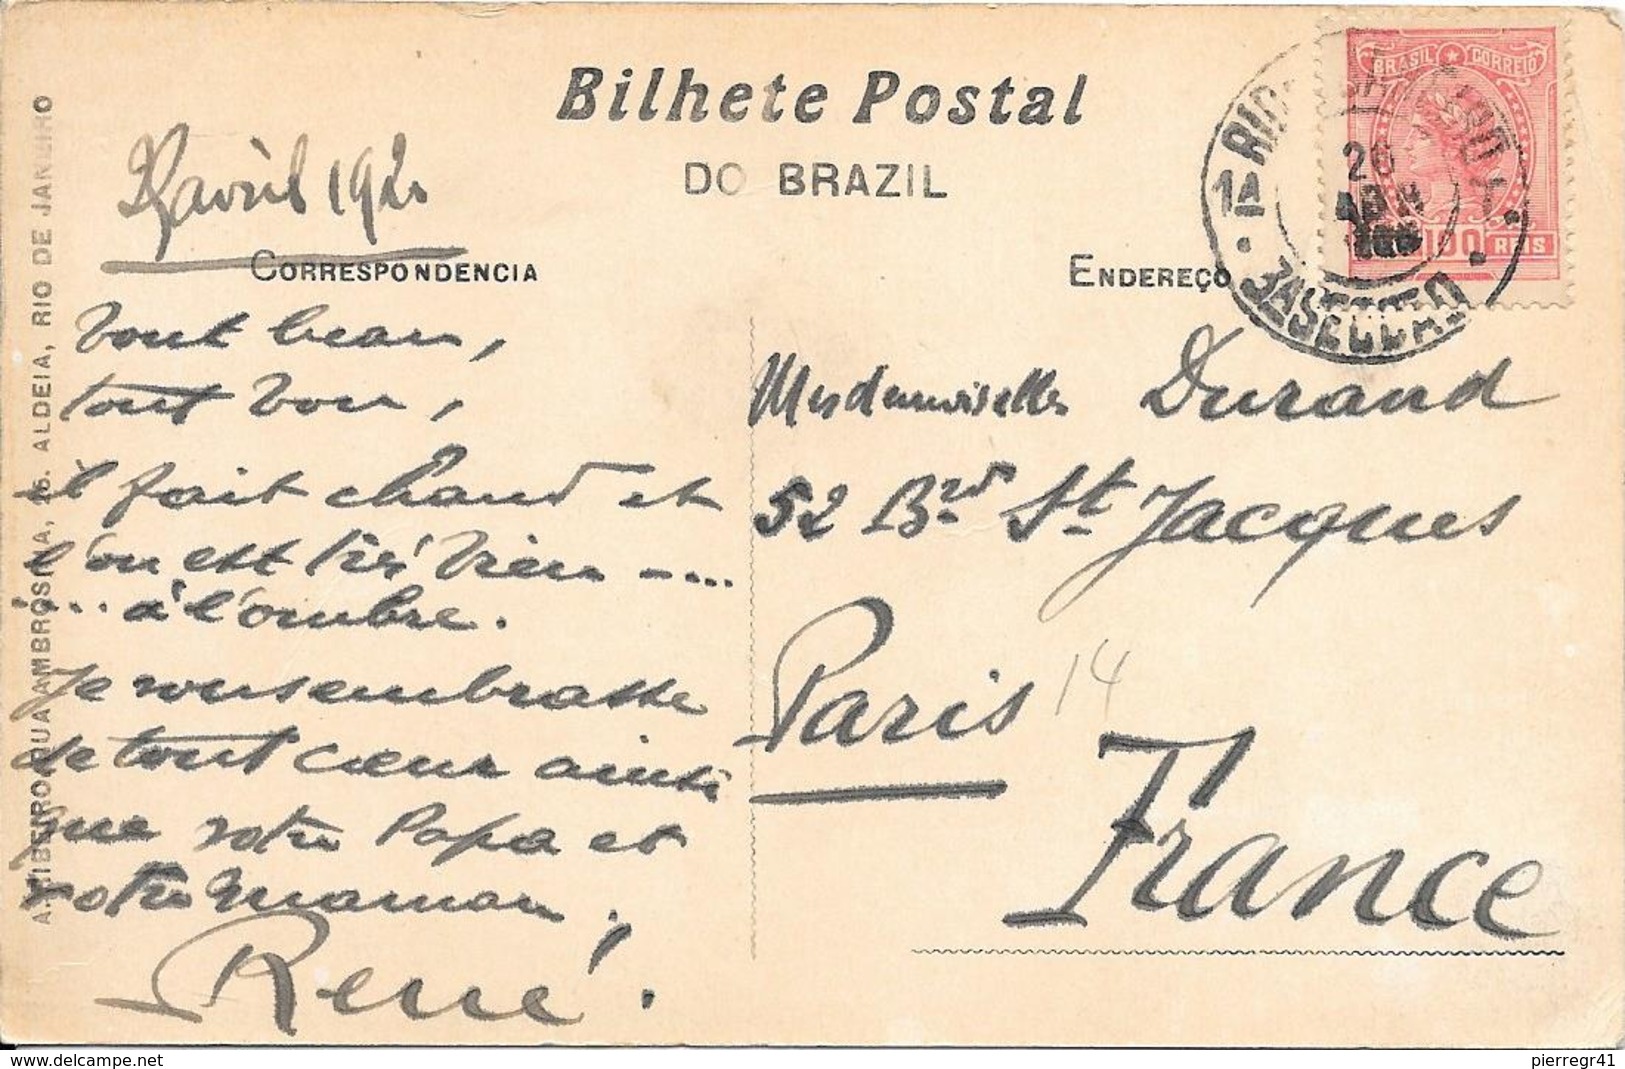 Bilhete Postal
DO BRAZIL
BRASIL CORREIO
100 REIS
RIO DE JANEIRO
1A
26
3A SECÇÃO
avril 192
CORRESPONDENCIA
ENDEREÇO
Tout beau,
tout bon,
il fait chaud et
l'on est très bien - ...
... à l'ombre.
Je vous embrasse
de tout cœur ainsi
que votre Papa et
votre maman.
René.
Mesdemoiselles Durand
52 Brd St Jacques
Paris 14
France
A. RIBEIRO, QUA AMBROSINA, 26. ALDEIA, RIO DE JANEIRO
delcampe.net
pierregr41